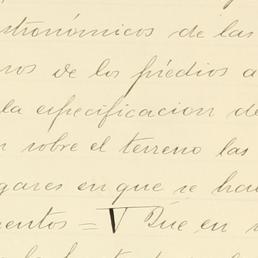 stronómicos de las
nos de los prédios a
la especificacion de
n sobre el terreno las
gares en que se hau
mentos = V Que en